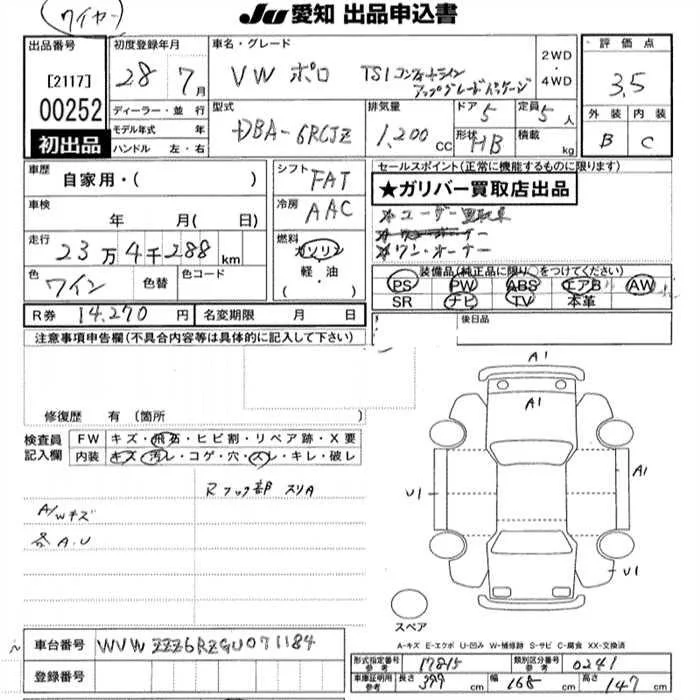 ワイヤー
JU 愛知 出品申込書
出品番号
[2117]
00252
初出品
初度登録年月
28 7月
ディーラー・並行
モデル年式 年
ハンドル 左・右
車名・グレード
VW ポロ TSI コンフォートライン
アップグレードパッケージ
2WD
4WD
型式
DBA-6RCJZ
排気量
1,200 CC
ドア 5
形状 HB
定員 5 人
積載 kg
評価点
3.5
外装 内装
B C
車歴
自家用・( )
車検
年 月( 日)
走行
23万4千288 km
色
ワイン 色替 色コード
R券 14,270 円 名変期限 月 日
シフト
FAT
冷房
AAC
燃料
ガソリン
軽・油
セールスポイント(正常に機能するものに限ります)
★ガリバー買取店出品
ユーザー買取車
ワンオーナー
ワン・オーナー
装備品(純正品に限り○をつけてください)
PS PW ABS エアB AW
SR ナビ TV 本革
後日品
注意事項申告欄(不具合内容等は具体的に記入して下さい)
修復歴 有(箇所
検査員
記入欄
FW キズ・飛石・ヒビ割・リペア跡・X要
内装 キズ・汚レ・コゲ・穴・スレ・キレ・破レ
Rフック部 スリA
A/Wキズ
各A.U
A1
A1
A1
U1
U1
スペア
A-キズ E-エクボ U-凹み W-補修跡 S-サビ C-腐食 XX-交換済
車台番号 WVWZZZ6RZGU071184
登録番号
形式指定番号
参考
17815
類別区分番号
参考
0241
車庫証明用
参考
長さ 399 cm 幅 168 cm 高さ 147 cm